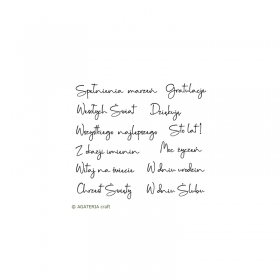 Spełnienia marzeń Gratulacje
Wesołych Świąt Dziękuję
Wszystkiego najlepszego Sto lat!
Z okazji imienin Moc życzeń
Witaj na świecie W dniu urodzin
Chrzest Święty W dniu Ślubu
© AGATERIA craft